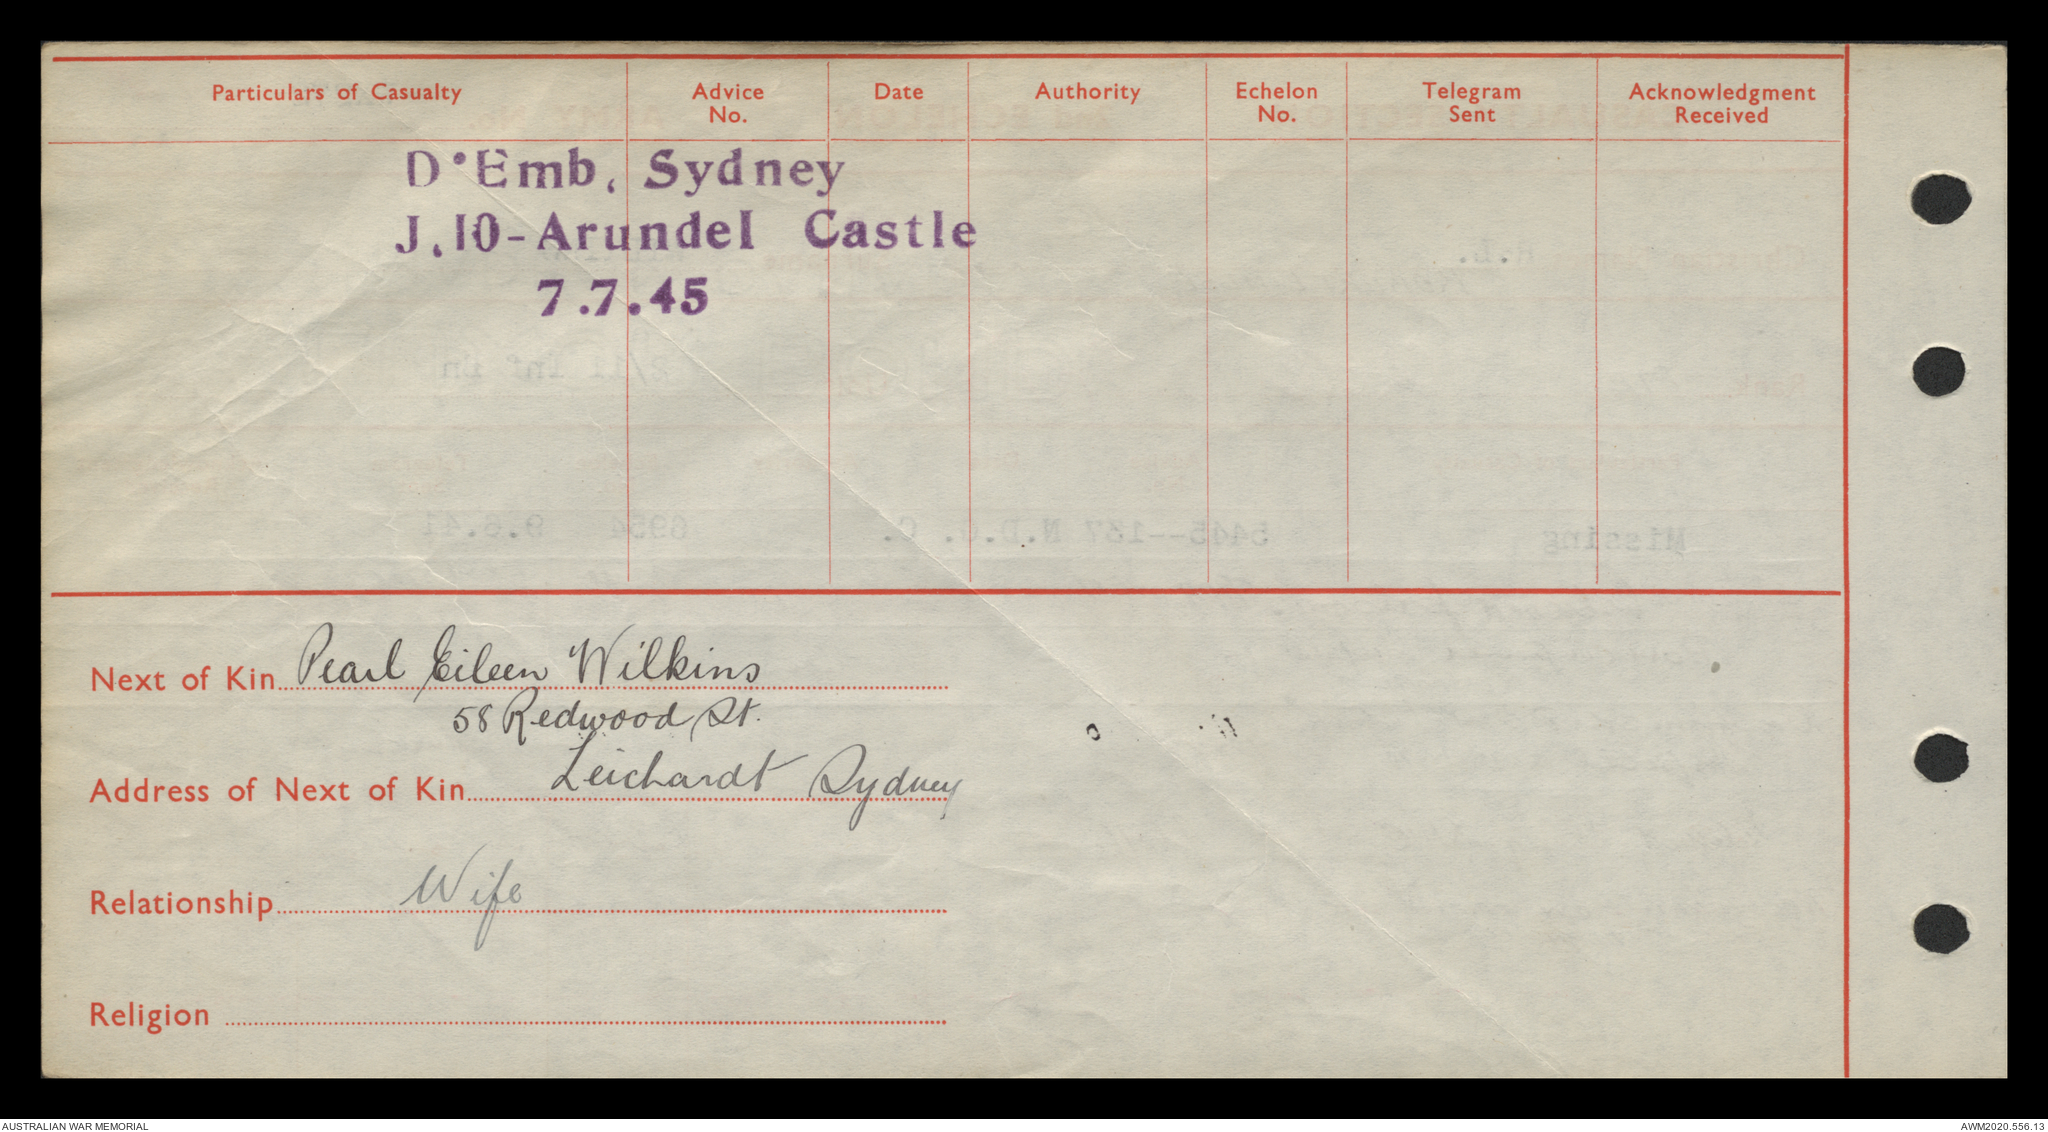 Particulars of Casualty Advice No. Date Authority Echelon No. Telegram Sent Acknowledgment Received
D'Emb. Sydney
J.10-Arundel Castle
7.7.45
Next of Kin Pearl Eileen Wilkins
58 Redwood St.
Address of Next of Kin Leichardt Sydney
Relationship Wife
Religion
AUSTRALIAN WAR MEMORIAL
AWM2020.556.13